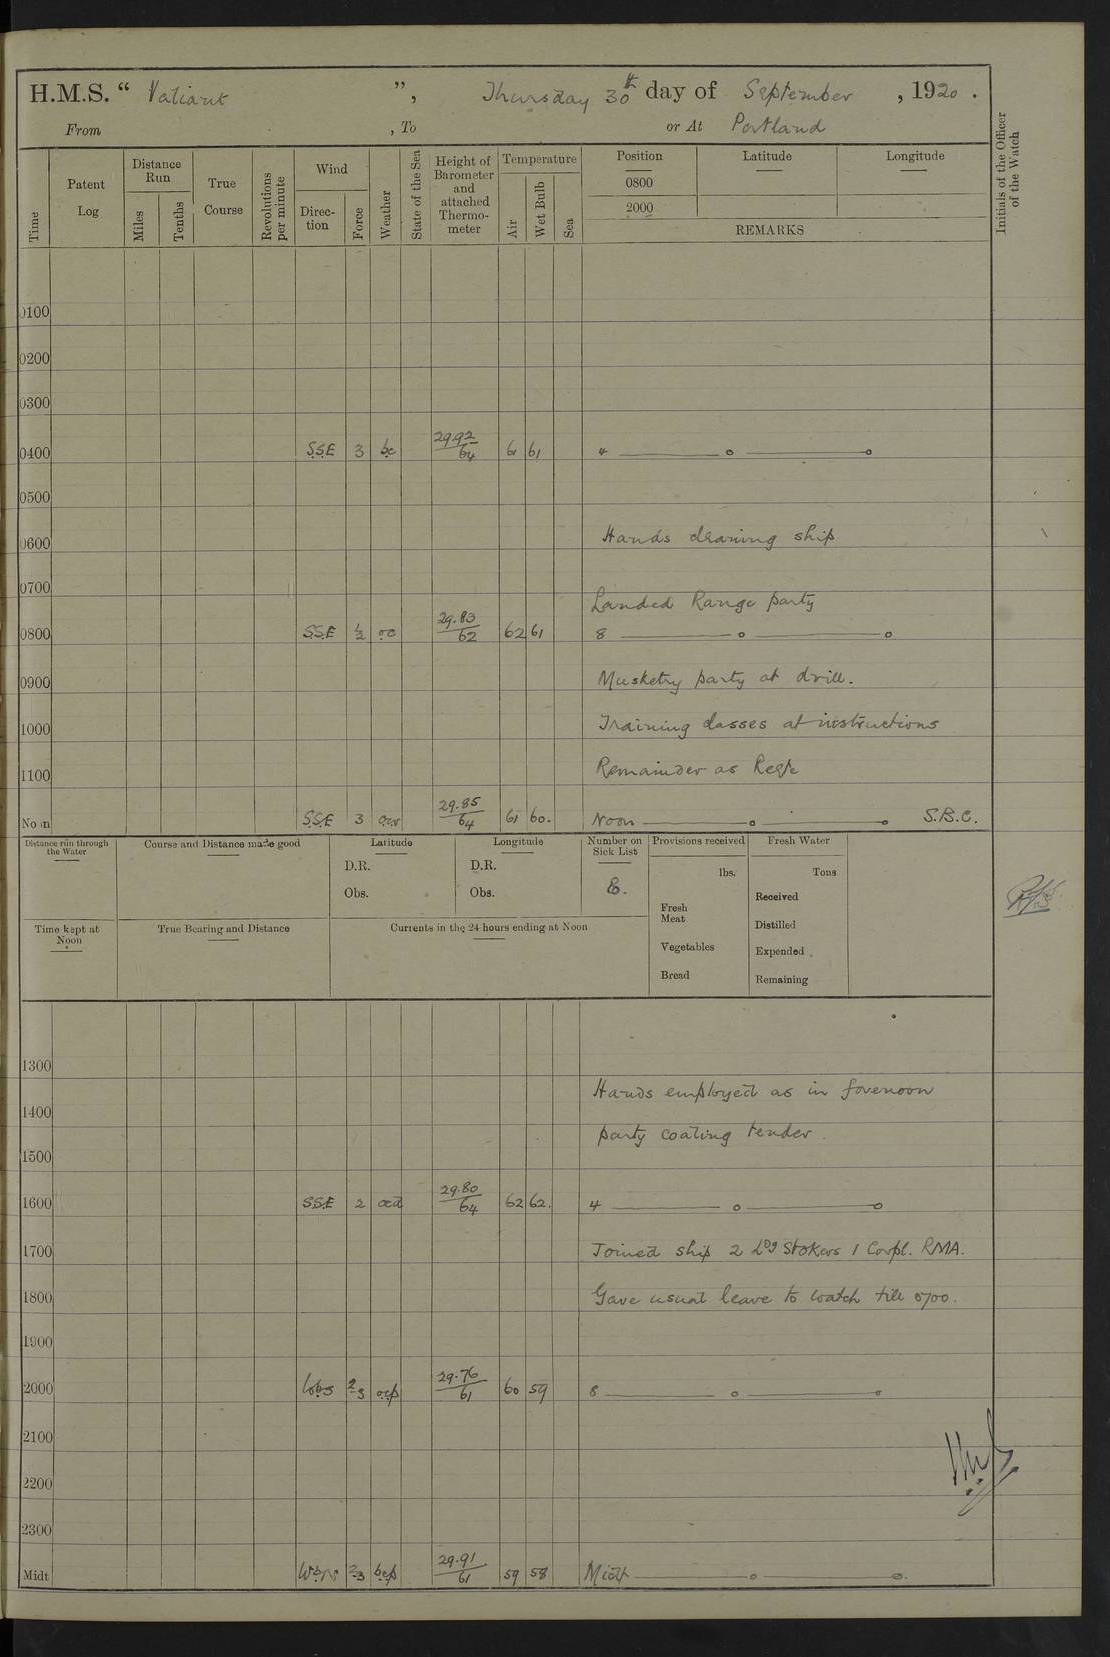 H.M.S. “ Valiant ”, Thursday 30th day of September , 1920 .
From , To or At Portland
Time
Patent Log
Distance Run
Miles
Tenths
True Course
Revolutions per minute
Wind
Direc-tion
Force
Weather
State of the Sea
Height of Barometer and attached Thermo-meter
Temperature
Air
Wet Bulb
Sea
Position
0800
2000
Latitude
Longitude
REMARKS
Initials of the Officer of the Watch
0100
0200
0300
0400 SSE 3 bc 29.92/64 61 61 4
0500
0600 Hands cleaning ship
0700
Landed Range party
0800 SSE 1/2 oc 29.83/62 62 61 8
0900 Musketry party at drill.
1000 Training classes at instructions
1100 Remainder as Reqte
Noon SSE 3 29.85/64 61 60. Noon S.B.C.
Distance run through the Water
Course and Distance made good
Latitude
D.R.
Obs.
Longitude
D.R.
Obs.
Number on Sick List
8.
Provisions received
lbs.
Fresh Meat
Vegetables
Bread
Fresh Water
Tons
Received
Distilled
Expended
Remaining
Time kept at Noon
True Bearing and Distance
Currents in the 24 hours ending at Noon
1300
Hands employed as in forenoon
1400
party coaling tender.
1500
1600 SSE 2 ocd 29.80/64 62 62. 4
1700 Joined ship 2 Ldg Stokers 1 Corpl. RMA.
1800 Gave usual leave to watch till 0700.
1900
2000 WbS 2-3 ocp 29.76/61 60 59 8
2100
2200
2300
Midt WbN 2-3 bcp 29.91/61 59 58 Midt